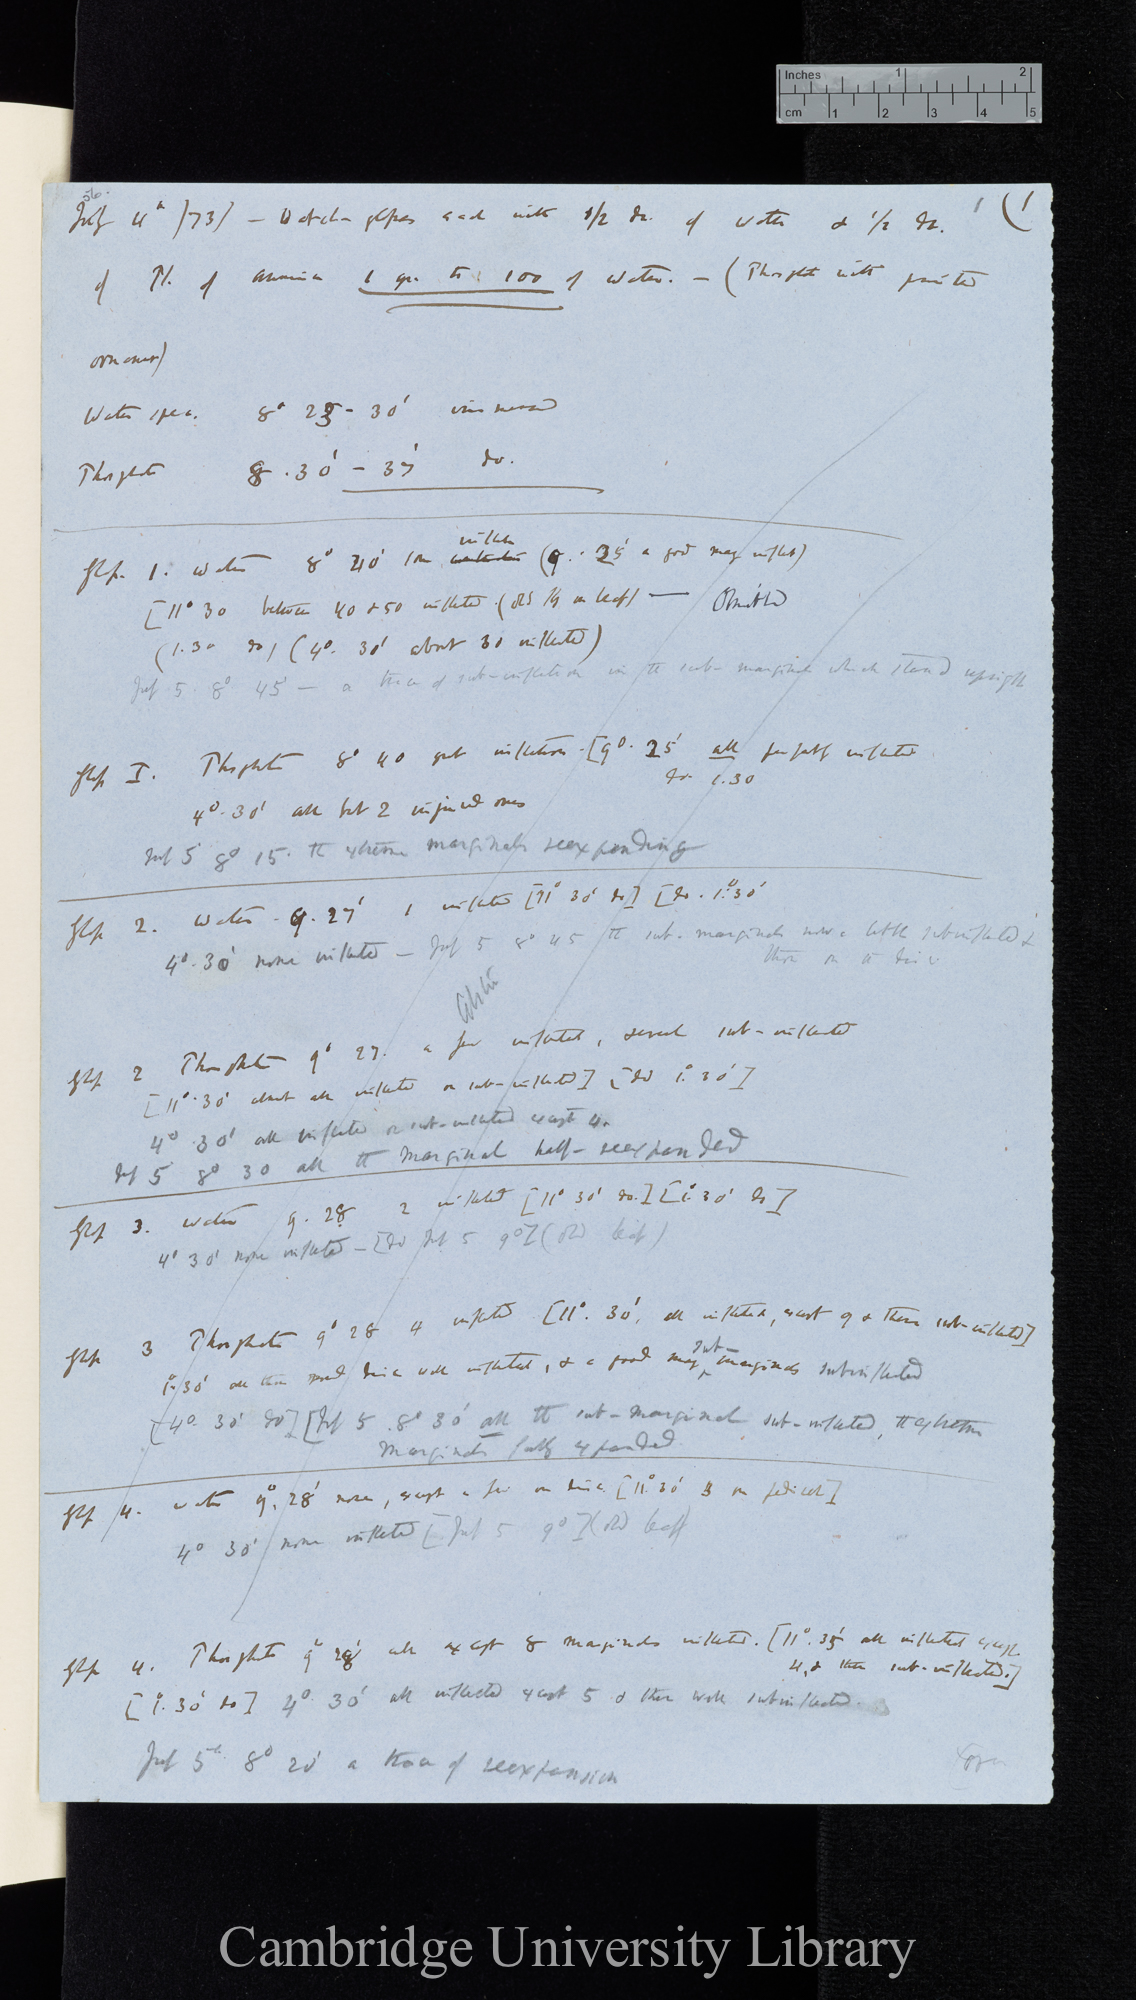 Inches 1 2
cm 1 2 3 4 5
56.
July 4th /73/ — Watch-glasses each with 1/2 dr. of water & 1/2 dr. 1 (1
of Ph. of ammonia 1 gr. to 100 of water. — (Phosphate with printed
ornament)
Water spec. 8° 25 - 30' immersed
Phosphate 8 . 30' - 37' do.
Glass 1. Water 8° 40' some inflec (9 . 25' a good many inflect)
[11° 30 between 40 & 50 inflected (old fly on leaf) — Doubtful
(1.30 do) (4°. 30' about 30 inflected)
July 5 8° 45' — a trace of sub-inflection in the sub-marginals which stand upright
Glass I. Phosphate 8° 40 great inflection — [9°. 25' all perfectly inflected
do 1.30
4°. 30' all but 2 injured ones
July 5 8° 15. the extreme marginals reexpanding
Glass 2. Water - 9. 27' 1 inflected [11° 30' do] [do . 1°.30'
4°. 30' none inflected — July 5 8° 45 the sub-marginals now a little subinflected &
those on the disc
Glass 2 Phosphate 9° 27. a few inflected, several sub-inflected
[11°. 30' about all inflected or sub-inflected] [do 1°. 30']
4° 30' all inflected or sub-inflected except 4.
July 5 8° 30 all the marginal half-reexpanded
Glass 3. Water 9. 28 2 inflected [11° 30' do.] [1° 30' do]
4° 30' none inflected — [do July 5 9°] (old leaf)
Glass 3 Phosphate 9° 28 4 inflected [11°. 30', all inflected, except 9 & these sub-inflected]
1°. 30' all the disc well inflected, & a good many sub-marginals subinflected
[4° 30' do] [July 5 8° 30' all the sub-marginal sub-inflected, the extreme
marginals fully expanded
Glass 4. Water 9°. 28' none, except a few on disc [11° 30' 3 on pedicel]
4° 30' none inflected [July 5 9°] (old leaf)
Glass 4. Phosphate 9° 28' all except 8 marginals inflected. [11°. 35' all inflected except
4, & these sub-inflected.]
[1°. 30' do] 4° 30' all inflected except 5 & these well subinflected.
July 5th 8° 20' a trace of reexpansion
Over
Cambridge University Library